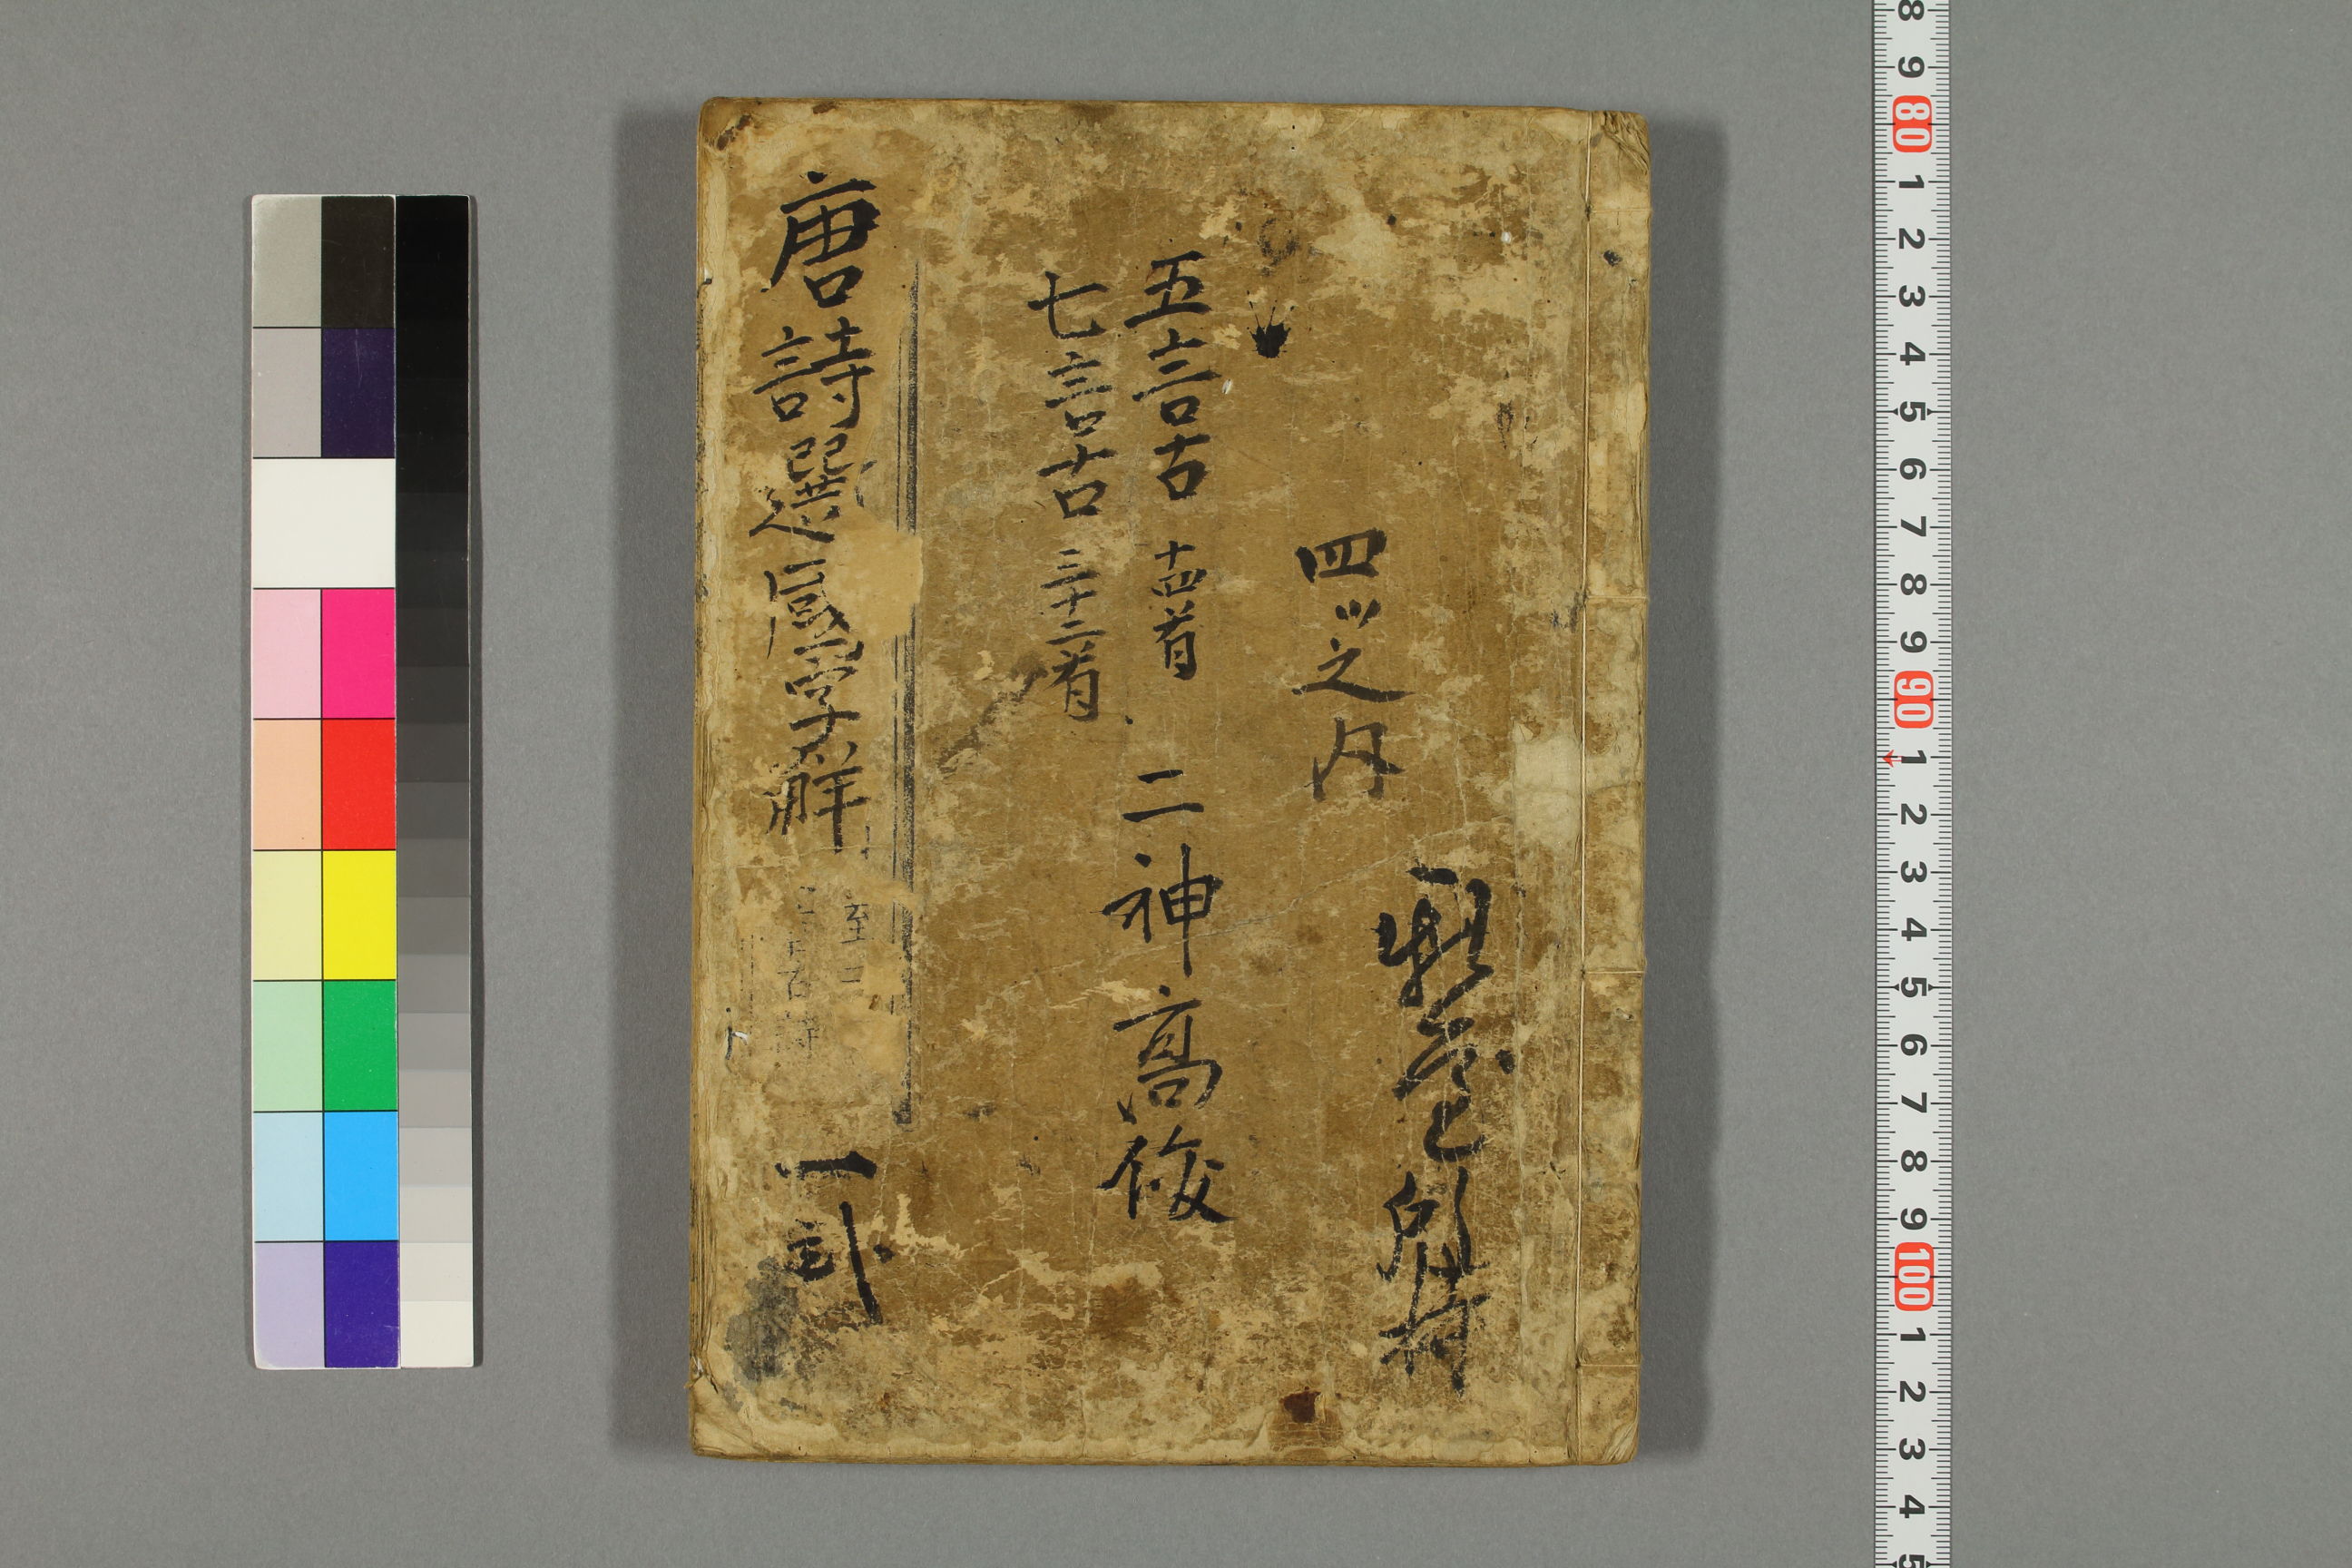 四ツ之内
五言古 十四首
七言古 三十二首
二神高俊
唐詩選國字解
至二
言古詩
一
8 9 80 1 2 3 4 5 6 7 8 9 90 1 2 3 4 5 6 7 8 9 100 1 2 3 4 5